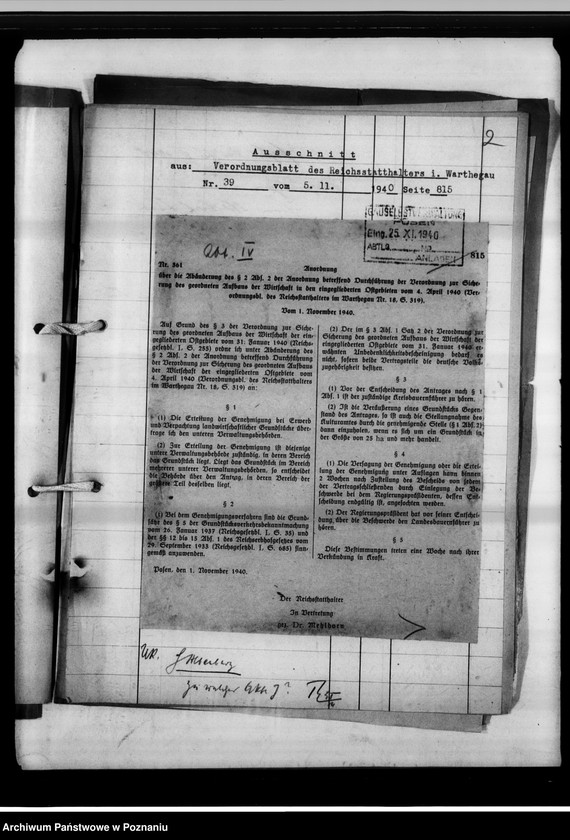 2
Ausschnitt
aus: Verordnungsblatt des Reichsstatthalters i. Warthegau
Nr. 39 vom 5. 11. 1940 Seite 815
GAUSELBSTVERWALTUNG
POSEN
Eing. 25. XI. 1940
ABTLG. NR.
ANLAGEN
Abt. IV
815
Nr. 561
Anordnung
über die Abänderung des § 2 Abs. 2 der Anordnung betreffend Durchführung der Verordnung zur Siche-
rung des geordneten Aufbaus der Wirtschaft in den eingegliederten Ostgebieten vom 4. April 1940 (Ver-
ordnungsbl. des Reichsstatthalters im Warthegau Nr. 18, S. 319).
Vom 1. November 1940.
Auf Grund des § 3 der Verordnung zur Siche-
rung des geordneten Aufbaus der Wirtschaft der ein-
gegliederten Ostgebiete vom 31. Januar 1940 (Reichs-
gesetzbl. I, S. 255) ordne ich unter Abänderung des
§ 2 Abs. 2 der Anordnung betreffend Durchführung
der Verordnung zur Sicherung des geordneten Aufbaus
der Wirtschaft der eingegliederten Ostgebiete vom
4. April 1940 (Verordnungsbl. des Reichsstatthalters
im Warthegau Nr. 18, S. 319) an:
§ 1
(1) Die Erteilung der Genehmigung bei Erwerb
und Verpachtung landwirtschaftlicher Grundstücke über-
trage ich den unteren Verwaltungsbehörden.
(2) Zur Erteilung der Genehmigung ist diejenige
untere Verwaltungsbehörde zuständig, in deren Bereich
das Grundstück liegt. Liegt das Grundstück im Bereich
mehrerer unterer Verwaltungsbehörden, so entscheidet
die Behörde über den Antrag, in deren Bereich der
größere Teil desselben liegt.
§ 2
(1) Bei dem Genehmigungsverfahren sind die Grund-
sätze des § 5 der Grundstücksverkehrsbekanntmachung
vom 26. Januar 1937 (Reichsgesetzbl. I, S. 35) und
der §§ 12 bis 15 Abs. 1 des Reichserbhofgesetzes vom
29. September 1933 (Reichsgesetzbl. I, S. 685) sinn-
gemäß anzuwenden.
(2) Der im § 3 Abs. 1 Satz 2 der Verordnung zur
Sicherung des geordneten Aufbaus der Wirtschaft der
eingegliederten Ostgebiete vom 31. Januar 1940 er-
wähnten Unbedenklichkeitsbescheinigung bedarf es
nicht, sofern beide Vertragsteile die deutsche Volks-
zugehörigkeit besitzen.
§ 3
(1) Vor der Entscheidung des Antrages nach § 1
Abs. 1 ist der zuständige Kreisbauernführer zu hören.
(2) Ist die Veräußerung eines Grundstücks Gegen-
stand des Antrages, so ist auch die Stellungnahme des
Kulturamtes durch die genehmigende Stelle (§ 1 Abs. 2)
dann einzuholen, wenn es sich um ein Grundstück in
der Größe von 25 ha und mehr handelt.
§ 4
(1) Die Versagung der Genehmigung oder die Ertei-
lung der Genehmigung unter Auflagen kann binnen
2 Wochen nach Zustellung des Bescheids von jedem
der Vertragschließenden durch Einlegung der Be-
schwerde bei dem Regierungspräsidenten, dessen Ent-
scheidung endgültig ist, angefochten werden.
(2) Der Regierungspräsident hat vor seiner Entschei-
dung, über die Beschwerde den Landesbauernführer zu
hören.
§ 5
Diese Bestimmungen treten eine Woche nach ihrer
Verkündung in Kraft.
Posen, den 1. November 1940.
Der Reichsstatthalter
In Vertretung
gez. Dr. Mehlhorn
Archiwum Państwowe w Poznaniu